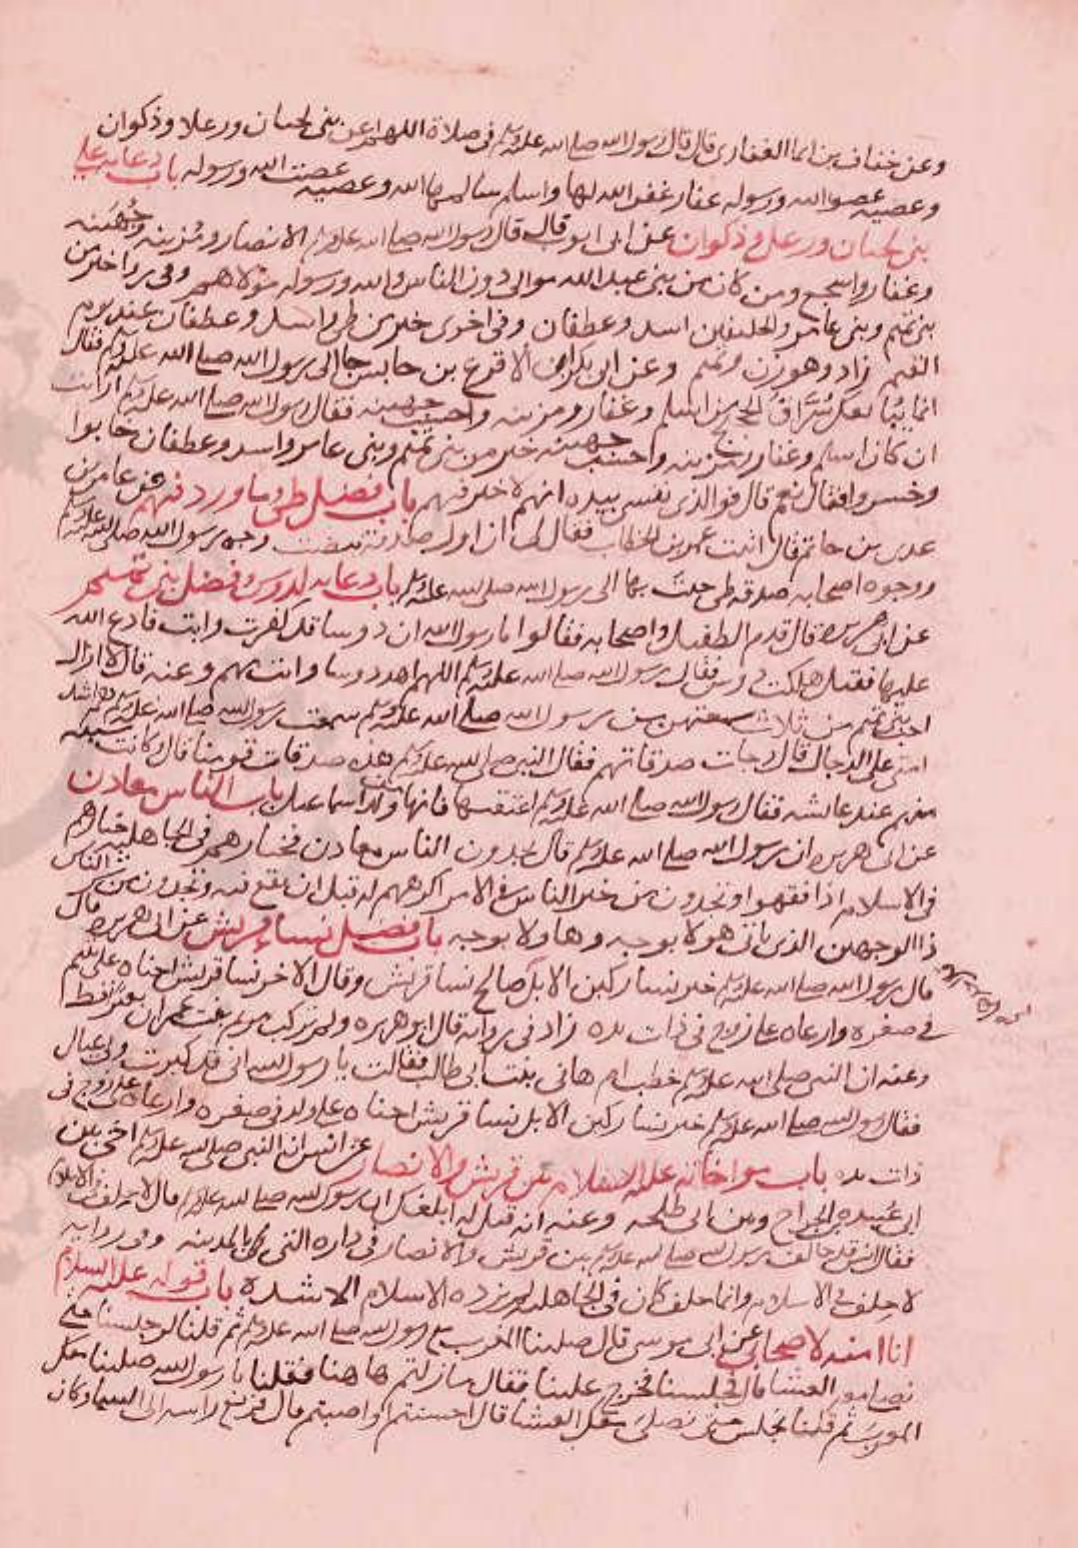 وعن خفاف بن ايما الغفارى قال قال رسول الله صلى الله عليه وسلم فى صلاة اللهم العن بنى لحيان ورعلا وذكوان
وعصيه عصوا الله ورسوله غفار غفر الله لها واسلم سالمها الله وعصيه عصت الله ورسوله باب دعايه على
بنى لحيان ورعل وذكوان عن ابى ايوب قال قال رسول الله صلى الله عليه وسلم الانصار ومزينه وجهينه
وغفار واشجع ومن كان من بنى عبد الله موالى دون الناس والله ورسوله مولاهم وفى اخرى خير من
بنى تميم وبنى عامر والحليفين اسد وغطفان وفى اخرى خير من طى واسد وغطفان عند يوم
القيم زاد وهوزن وتميم وعن ابى بكرة ان الاقرع بن حابس جا الى رسول الله صلى الله عليه وسلم فقال
انما بايعك سراق الحجيج من اسلم وغفار ومزينه واحسب جهينه فقال رسول الله صلى الله عليه وسلم ارايت
ان كان اسلم وغفار ومزينه واحسب جهينه خير من بنى تميم وبنى عامر واسد وغطفان خابوا
وخسروا فقال نعم قال فوالذى نفسى بيده انهم لاخير منهم باب فضل طى وما ورد فيهم عن عامر عن
عدى بن حاتم قال اتيت عمر بن الخطاب فقال لى ان اول صدقة بيضت وجه رسول الله صلى الله عليه وسلم
ووجوه اصحابه صدقه طى جئت بها الى رسول الله صلى الله عليه وسلم باب دعايه لدوس وفضل بنى تميم
عن ابى هريره قال قدم الطفيل واصحابه فقالوا يا رسول الله ان دوسا قد كفرت وابت فادع الله
عليها فقيل هلكت دوس فقال رسول الله صلى الله عليه وسلم اللهم اهد دوسا وائت بهم وعنه قال لا ازال
احب بنى تميم من ثلاث سمعتهن من رسول الله صلى الله عليه وسلم سمعت رسول الله صلى الله عليه وسلم هم اشد
امتى على الدجال قال وجات صدقاتهم فقال النبى صلى الله عليه وسلم هذه صدقات قومنا قال وكانت سبيه
منهم عند عايشه فقال رسول الله صلى الله عليه وسلم اعتقيها فانها من ولد اسماعيل باب الناس معادن
عن ابى هريره ان رسول الله صلى الله عليه وسلم قال تجدون الناس معادن فخيارهم فى الجاهليه خيارهم
فى الاسلام اذا فقهوا وتجدون من خير الناس فى الامر اكرههم له قبل ان يقع فيه وتجدون من شر الناس
ذا الوجهين الذى ياتى هولا بوجه وهاولا بوجه باب فضل نسا قريش عن ابى هريره قال
قال رسول الله صلى الله عليه وسلم خير نسا ركبن الابل صالح نسا قريش وقال الاخر نسا قريش احناه على يتيم
فى صغره وارعاه على زوج فى ذات يده زاد فى روايه قال ابو هريره ولم تركب مريم بنت عمران بعيرا قط
وعنه ان النبى صلى الله عليه وسلم خطب ام هانى بنت ابى طالب فقالت يا رسول الله انى قد كبرت ولى عيال
فقال رسول الله صلى الله عليه وسلم خير نسا ركبن الابل نسا قريش احناه على ولد فى صغره وارعاه على زوج فى
ذات يده باب مواخاته عليه السلام بين قريش والانصار عن انس ان النبى صلى الله عليه وسلم اخى بين
ابى عبيده بن الجراح وبين ابى طلحه وعنه انه قيل له ابلغك ان رسول الله صلى الله عليه وسلم قال لا حلف فى الاسلام
فقال انس قد حالف رسول الله صلى الله عليه وسلم بين قريش والانصار فى داره التى بالمدينه وفى روايه
لا حلف فى الاسلام وانما حلف كان فى الجاهليه لم يزده الاسلام الا شده باب قوله عليه السلام
انا امنه لاصحابى عن ابى موسى قال صلينا المغرب مع رسول الله صلى الله عليه وسلم ثم قلنا لو جلسنا حتى
نصلى معه العشا قال فجلسنا فخرج علينا فقال ما زلتم ها هنا فقلنا يا رسول الله صلينا معك
المغرب ثم قلنا نجلس حتى نصلى معك العشا قال احسنتم او اصبتم قال فرفع راسه الى السما وكان